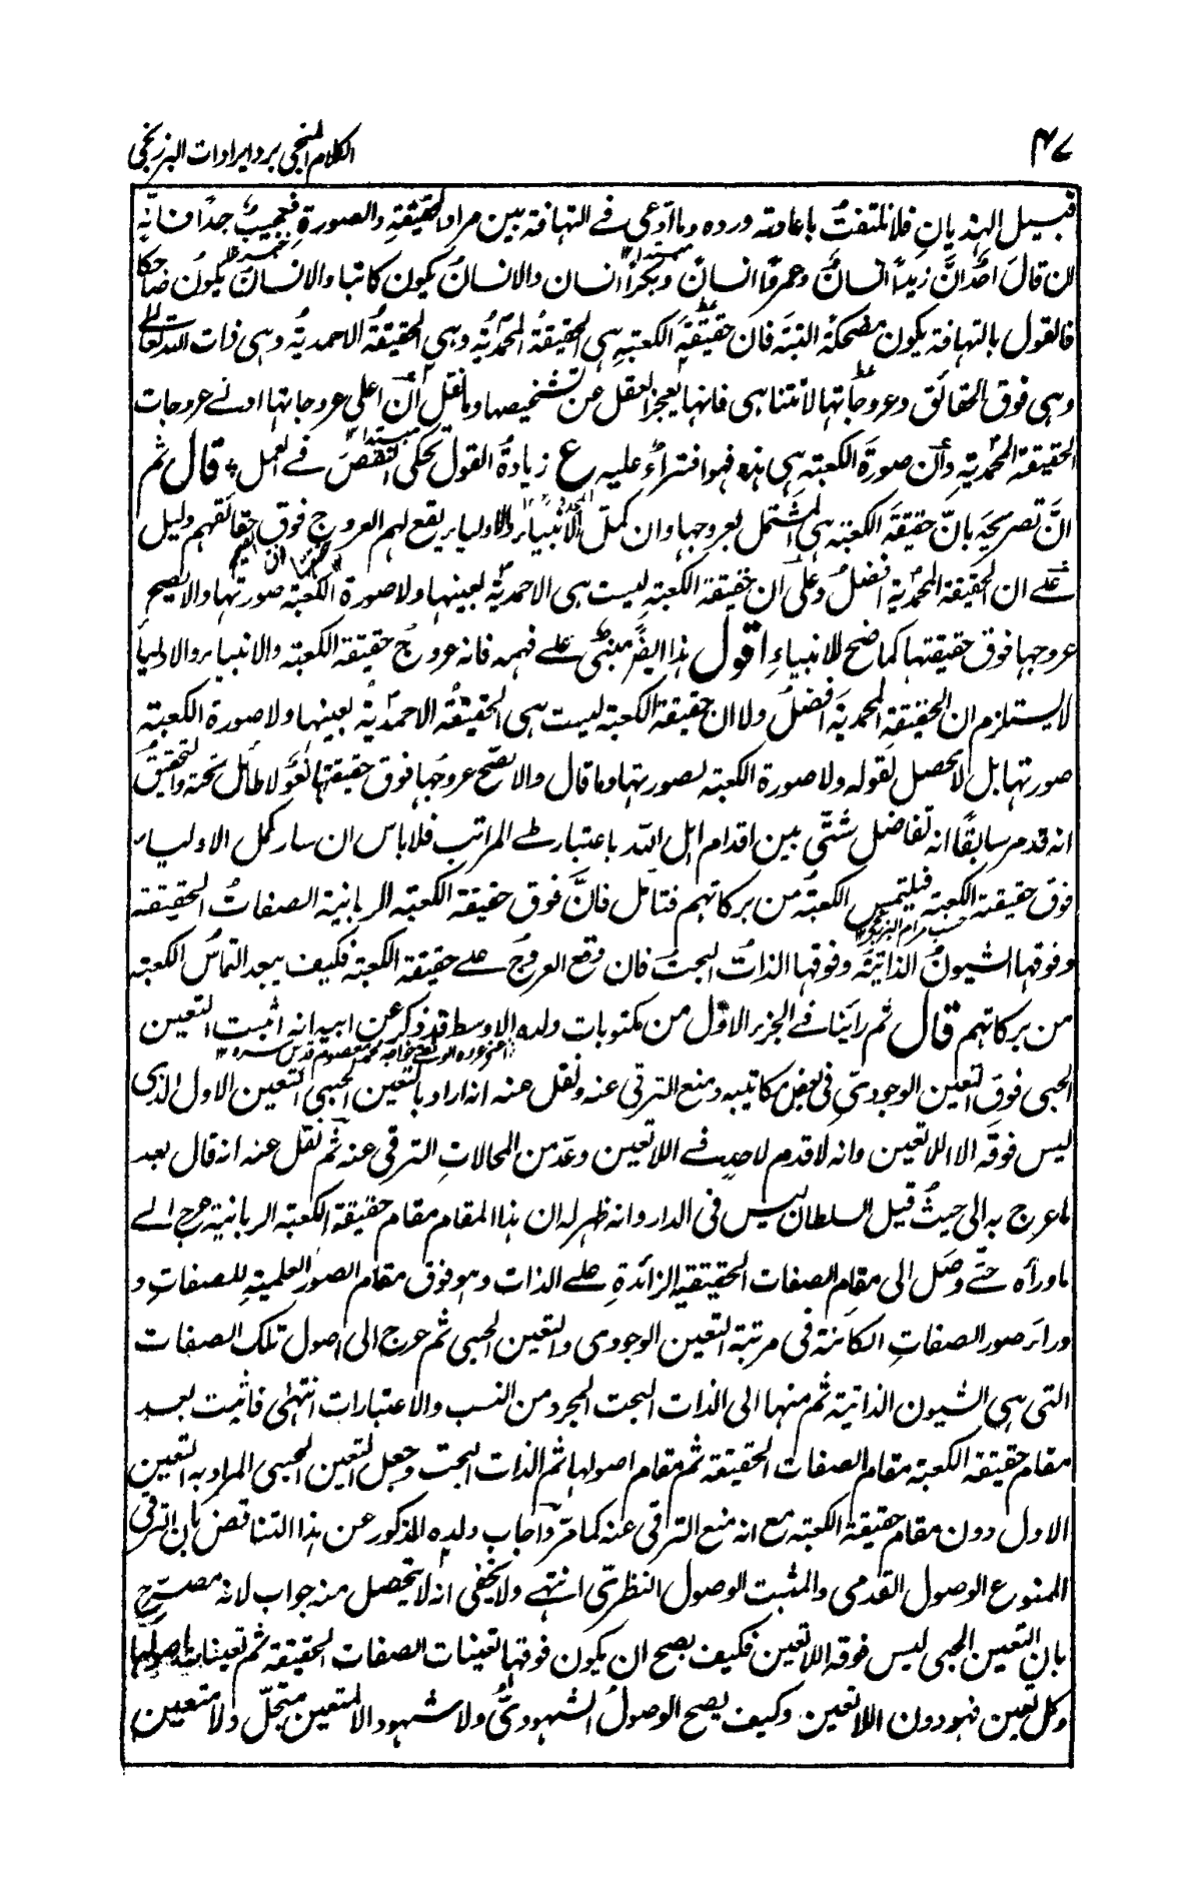 ٤٧
الكلام المنجي برد ايرادات البرزنجي
قبيل الهذيان فلا نلتفتُ باعادته ورده وما ادّعى في التهافة بين مراد الحقيقةِ والصورةِ فعجيبٌ جدًا فانّه
لن قال احدٌ انّ زيدًا انسانٌ وعمرًا انسانٌ وبكرًا انسان والانسانُ يكون كاتبا والانسانُ يكونُ ضاحكا
فالقول بالتهافة يكون مضحكة البتةَ فان حقيقةَ الكعبةِ هي الحقيقةُ المحمديّةُ وهي الحقيقةُ الاحمديةُ وهي ذات الله تعالى
وهي فوق الحقائق وعروجاتها لا تتناهى فانها يعجز العقل عن تشخيصها وما نقل انّ اعلى عروجاتها ادنى عروجات
الحقيقة المحمديةِ وأن صورةَ الكعبةِ هي هذه فهو افتراءٌ عليه ع زيادةُ القول تحكي النقصَ في العمل قال ثم
انّ تصريحَه بانّ حقيقةَ الكعبة هي المشتمل بعروجها وان كمّلَ الانبياء والاولياء يقع لهم العروج فوق حقائقهم دليل
على ان الحقيقة المحمديّة افضلُ وعلى ان حقيقة الكعبة ليست هي الاحمديّة بعينها ولا صورة الكعبة صورتها والا لصح
عروجها فوق حقيقتها كما صح للانبياءِ اقول هذا ايضًا مبنيٌّ على فهمه فانه عروجُ حقيقة الكعبة والانبياء والاوليا
لا يستلزم ان الحقيقةَ المحمديةَ افضلُ ولا ان حقيقة الكعبة ليست هي الحقيقةُ الاحمديةُ بعينها ولا صورة الكعبة
صورتها بل لا يحصل لقوله ولا صورة الكعبة لصورتها وما قال والا يصّح عروجُها فوق حقيقتها لغوٌ لا طائل تحته والتحقيقُ
انه قد مر سابقًا انه تفاضل شتّى بين اقدام اهل الله باعتبار طے المراتب فلا باس ان سار كمل الاولياء
فوق حقيقة الكعبة فيلتمس الكعبةُ من بركاتهم فتامل فانّ فوق حقيقة الكعبة الربانية الصفاتُ الحقيقة
حسب مرام البرزنجي ١٢
وفوقها الشيونُ الذاتيّة وفوقها الذاتُ البحتُ فان وقع العروجُ على حقيقة الكعبة فكيف يبعد التماسُ الكعبة
من بركاتهم قال ثم راينا في الجزء الاول من مكتوبات ولده الاوسط قد ذكر عن ابيه انه اثبت التعين
اعني عروة الوثقى خواجه محمد معصوم قدس سره ١٢
الحبى فوق التعين الوجودي في بعض مكاتيبه ومنع الترقي عنه ونقل عنه انه اراد بالتعين الحبي التعين الاول الذي
ليس فوقه الا اللا تعين وانه لا قدم لاحدٍ في اللا تعين وعدّ من المحالاتِ الترقي عنه ثم نقل عنه انه قال بعد
ما عرج به الى حيثُ قيل السلطان ليس في الدار وانه ظهر له ان هذا المقام مقام حقيقة الكعبة الربانية عرج الى
ما ورأه حتى وصل الى مقام الصفات الحقيقيةِ الزائدةِ على الذات وهو فوق مقام الصور العلميةِ للصفاتِ و
وراء صور الصفاتِ الكائنة في مرتبة التعين الوجودي والتعين الحبي ثم عرج الى اصول تلك الصفات
التي هي الشيون الذاتية ثم منها الى الذات البحت المجرد من النسب والاعتبارات انتهى فاثبت بعد
مقام حقيقة الكعبة مقام الصفات الحقيقة ثم مقام اصولها ثم الذات البحت وجعل التعين الحبي المراد به التعين
الاول دون مقام حقيقة الكعبة مع انه منع الترقي عنه كما مرّ واجاب ولده المذكور عن هذا التناقض بان الترقي
الممنوع الوصول القدمي والمثبت الوصول النظريّ انتهے ولا يخفى انه لا يتحصل منه جواب لانه مصرّح
بان التعين الحبي ليس فوقه اللا تعين فكيف يصح ان يكون فوقها تعينات الصفات الحقيقة ثم تعينات اصولها
وكل تعين فهو دون اللا تعين وكيف يصح الوصولُ الشهوديُّ ولا شهود الا لمتعين متجلّ ولا متعين